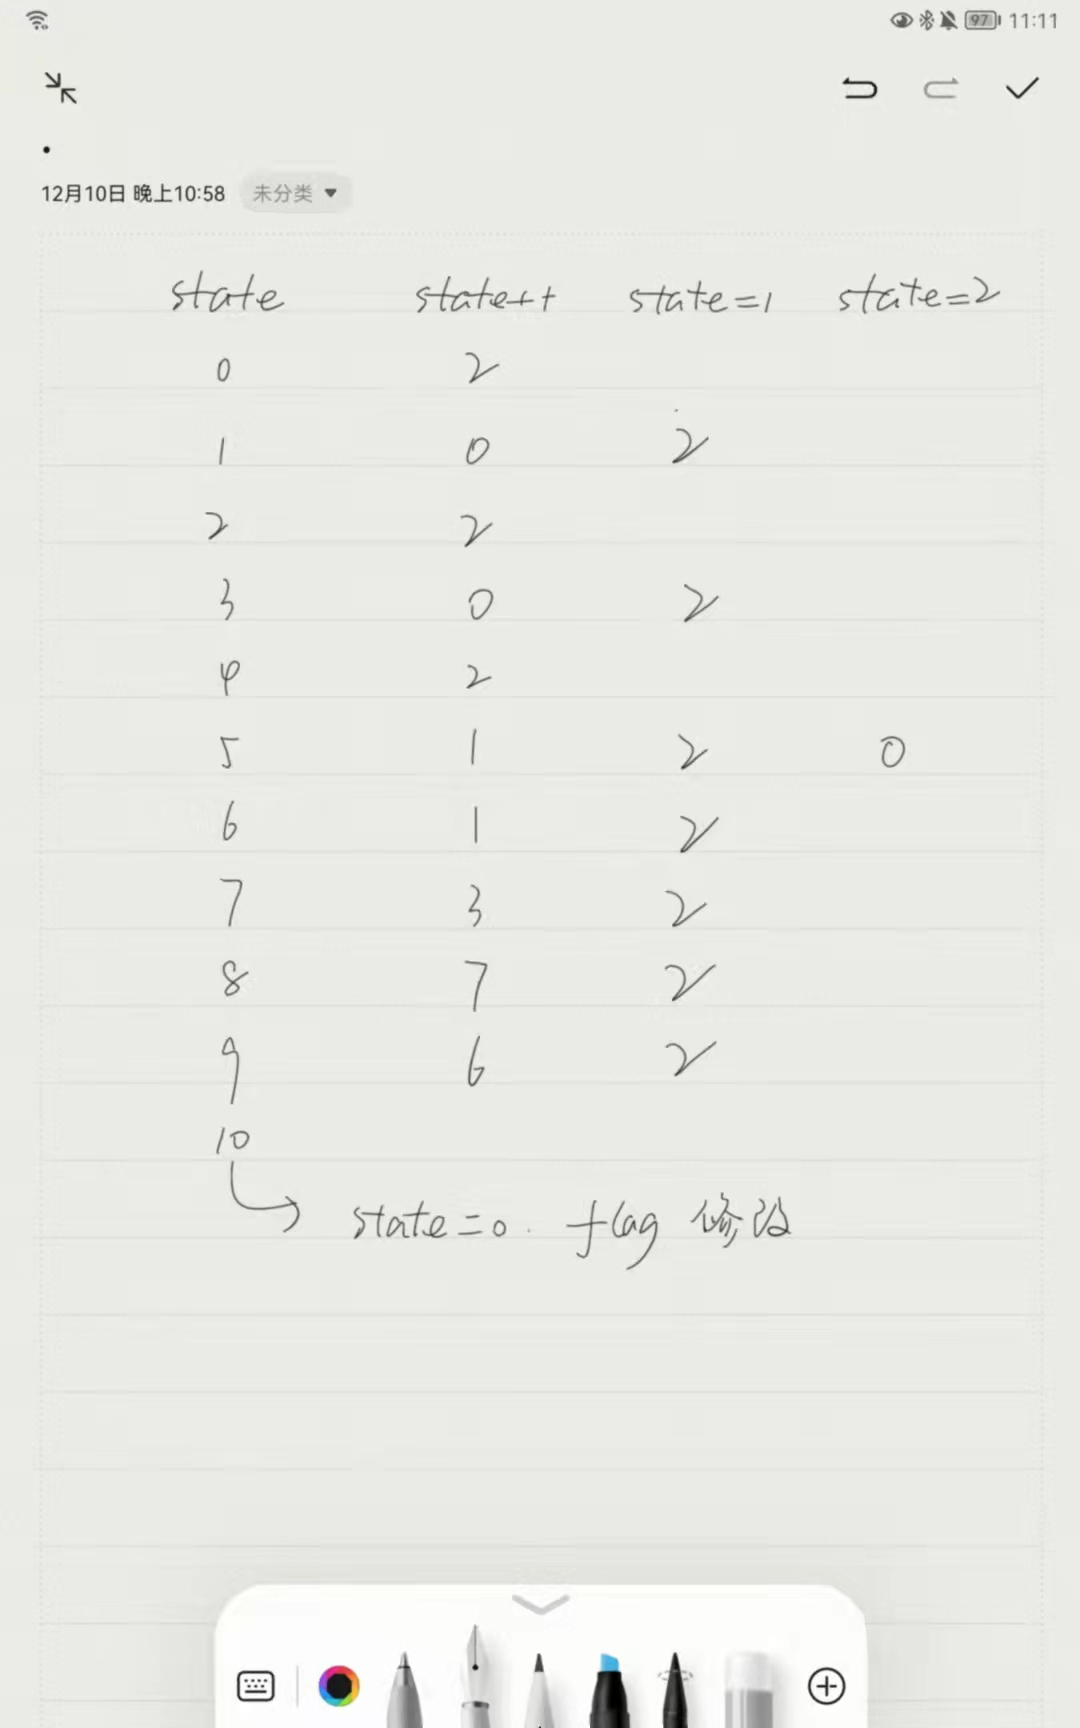 97 11:11
12月10日 晚上10:58 未分类
state state++ state=1 state=2
0 2
1 0 2
2 2
3 0 2
4 2
5 1 2 0
6 1 2
7 3 2
8 7 2
9 6 2
10
state=0. flag 修改